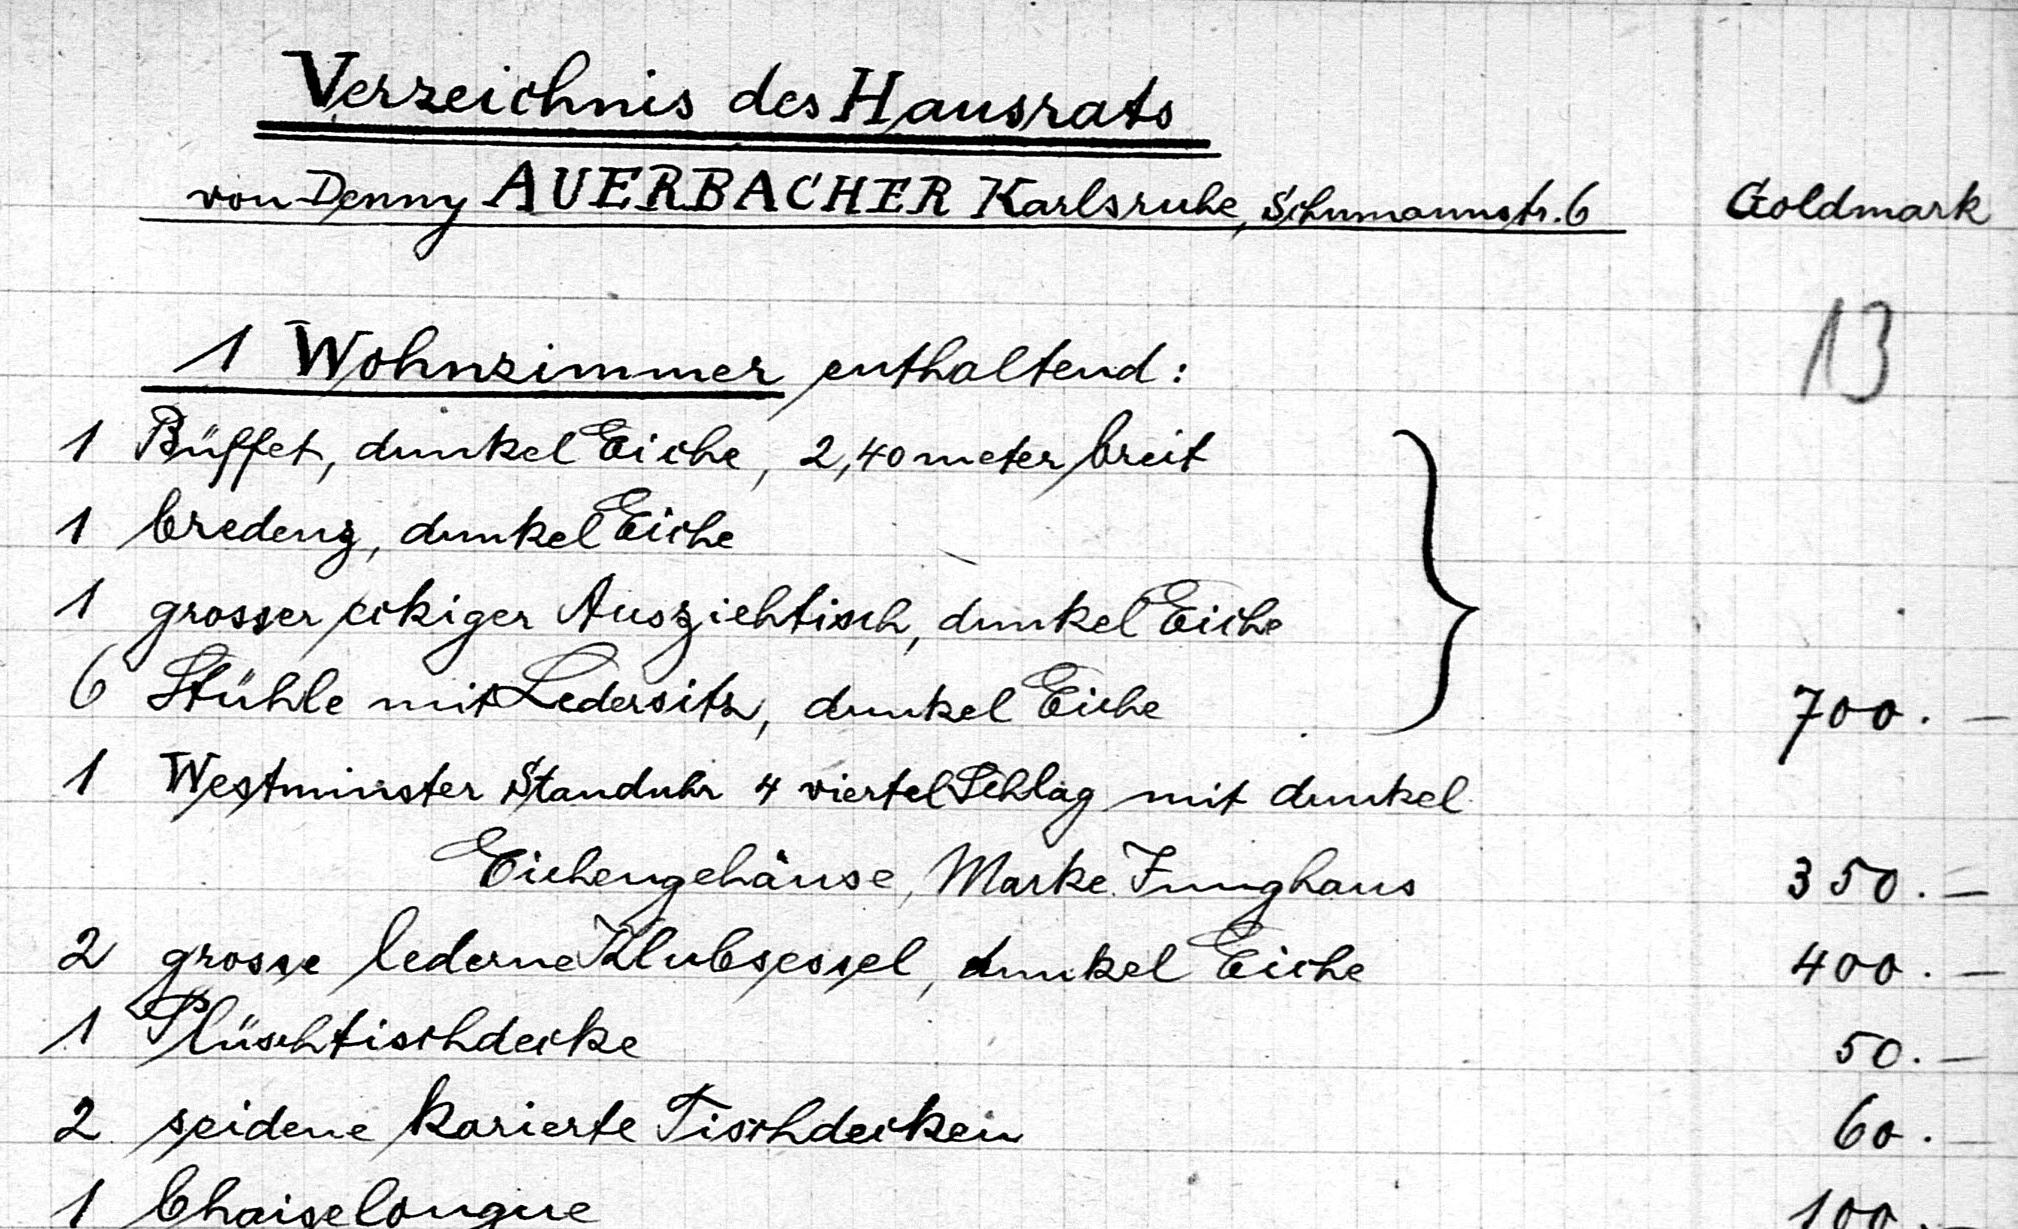 Verzeichnis des Hausrats
von Denny AUERBACHER Karlsruhe, Schumannstr. 6 Goldmark
13
1 Wohnzimmer enthaltend:
1 Büffet, dunkel Eiche, 2,40 meter breit
1 Credenz, dunkel Eiche
1 grosser eckiger Ausziehtisch, dunkel Eiche
6 Stühle mit Ledersitz, dunkel Eiche 700.—
1 Westminster Standuhr 4 viertel Schlag mit dunkel
Eichengehäuse, Marke Junghans 350.—
2 grosse lederne Klubsessel, dunkel Eiche 400.—
1 Plüschtischdecke 50.—
2 seidene karierte Tischdecken 60.—
1 Chaiselongue 100.—